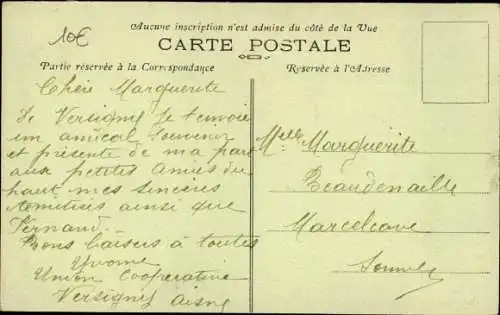 10€
Aucune inscription n'est admise du côté de la Vue
CARTE POSTALE
Partie réservée à la Correspondance
Réservée à l'Adresse
Chère Marguerite
De Versigny je t'envoie
un amical Souvenir
et présente de ma part
aux petites Amies du
haut mes sincères
Amitiés ainsi que
Fernand
Bons baisers à toutes
Yvonne
Union Coopérative
Versigny Aisne
Melle Marguerite
Beaudenaille
Marcelcave
Somme